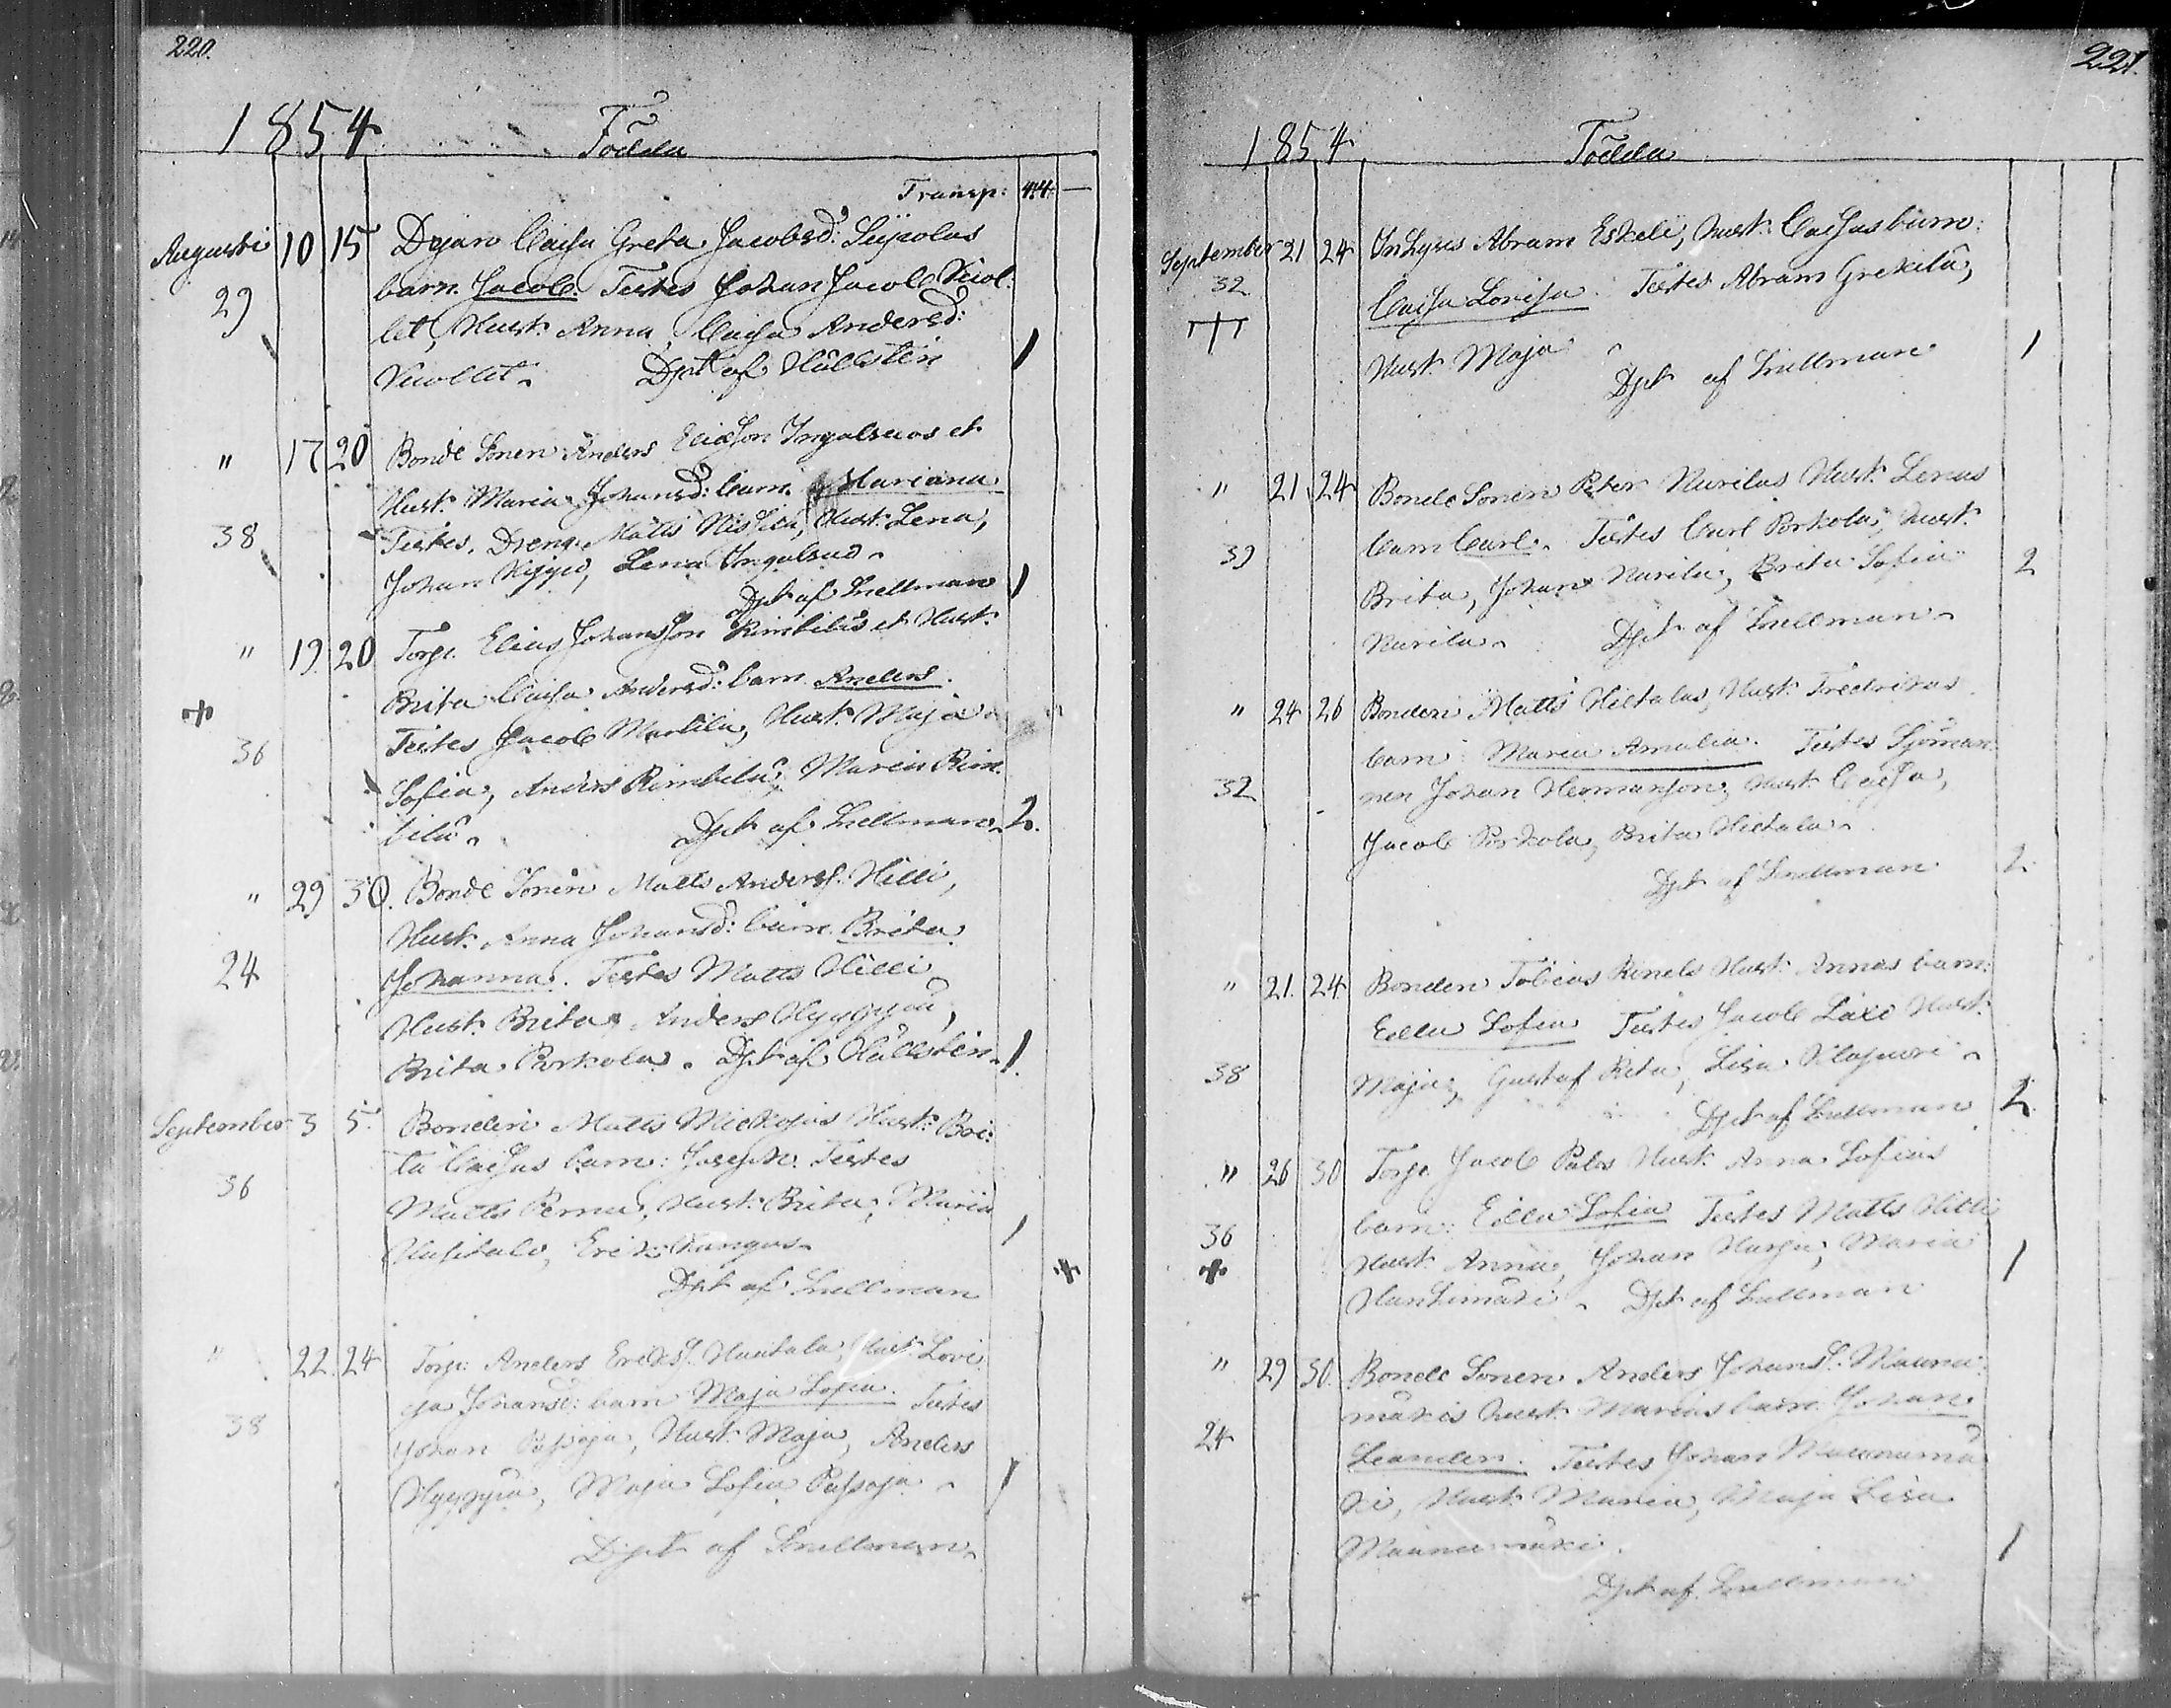 220.
1854 Födda
Transp: 44 —
Augusti 10 15 Digan Caisa Greta Jacobsd:
29 barn. Jacob. Testes Johan Jacob
let, Hust. Anna, Caisa Andersd:
Dpt af Hällsten 1
" 17 20 Bonde Sonen Anders Eliasson et
Hust. Maria Johansd: barn. Mariana
38 Testes, Dreng. Matts Hust. Lena,
Johan Lena
Dpt af Snellman 1
" 19 20 Torp. Elias Johansson Rimbilas et Hust.
Brita Caisa Andersd: barn Anders.
36 Testes Jacob Marttila, Hust. Maja
Sofia, Anders Rimbilä, Maria Rim
bilä. Dpt af Snellman 2.
" 29 30. Bonde Sonen Matts Andersf. Hilli,
Hust. Anna Johansd: barn. Brita
24 Johanna. Testes Matts Hilli
Hust. Brita, Anders Hyyppä,
Brita Porkola. Dpt af Hällsten 1.
September 3 5. Bonden Matts Hust: Bri:
ta Caisas barn: Joseph. Testes
36 Matts Perna, Hust. Brita, Maria
Erik Kangas 1
Dpt af Snellman
" 22 24 Torp: Anders Eriksf. Hautala, Hust. Lovi
sa Johansd: barn Maja Sofia. Testes
38 Johan Passoja, Hust. Maja, Anders
Hyyppä, Maja Sofia Passoja 1
Dpt af Snellman
221.
1854 Födda
September 21 24 Inhyses Abram Eskeli, Hust. Caisas barn:
32 Caisa Lovisa. Testes Abram Grekilä,
Hust. Maja 1
Dpt af Snellman
" 21 24 Bonde Sonen Peter Nurilas Hust. Lenas
39 barn Carl. Testes Carl Porkola, Hust.
Brita, Johan Nurila, Brita Sofia 2
Nurila Dpt af Snellman
" 24 26 Bonden Matts Hietalas, Hust. Fredrikas
barn: Maria Amalia. Testes Sjöman
32 nen Johan Hermansson, Hust. Caisa,
Jacob Porkola, Brita Hietala
Dpt af Snellman 2
" 21. 24 Bonden Tobias Hust. Annas barn:
Edla Sofia Testes Jacob Hust.
38 Maja, Gustaf Lisa
Dpt af Snellman 2
" 26 30 Torp. Jacob Palos Hust. Anna Sofias
barn: Edla Sofia Testes Matts Hilli
36 Hust. Anna, Johan Harju, Maria 1
Dpt af Snellman
" 29 30. Bonde Sonen Anders Johansf. Maunu:
mäkis Hust. Marias barn Johan
24 Leander. Testes Johan Maunumä
ki, Hust. Maria, Maja Lisa
Maunumäki. 1
Dpt af Snellman